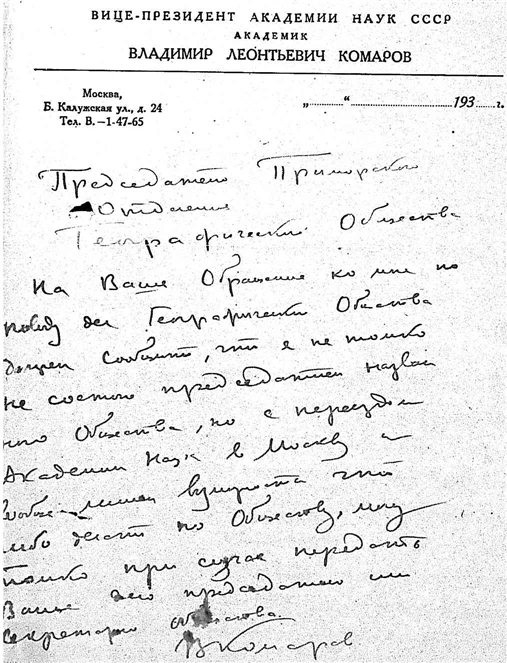 ВИЦЕ-ПРЕЗИДЕНТ АКАДЕМИИ НАУК СССР
АКАДЕМИК
ВЛАДИМИР ЛЕОНТЬЕВИЧ КОМАРОВ
Москва,
Б. Калужская ул., д. 24
Тел. В.—1-47-65
„ “ 193 г.
Председателю Приморского
Отделения
Географического Общества
На Ваше Обращение ко мне по
поводу дел Географического Общества
должен сообщить, что я не только
не состою председателем назван
ного Общества, но с переездом
Академии Наук в Москву и
вообще лишен возможности что
либо делать по Обществу, могу
только при случае передать
Ваше его председателю или
Секретарю общества.
В Комаров